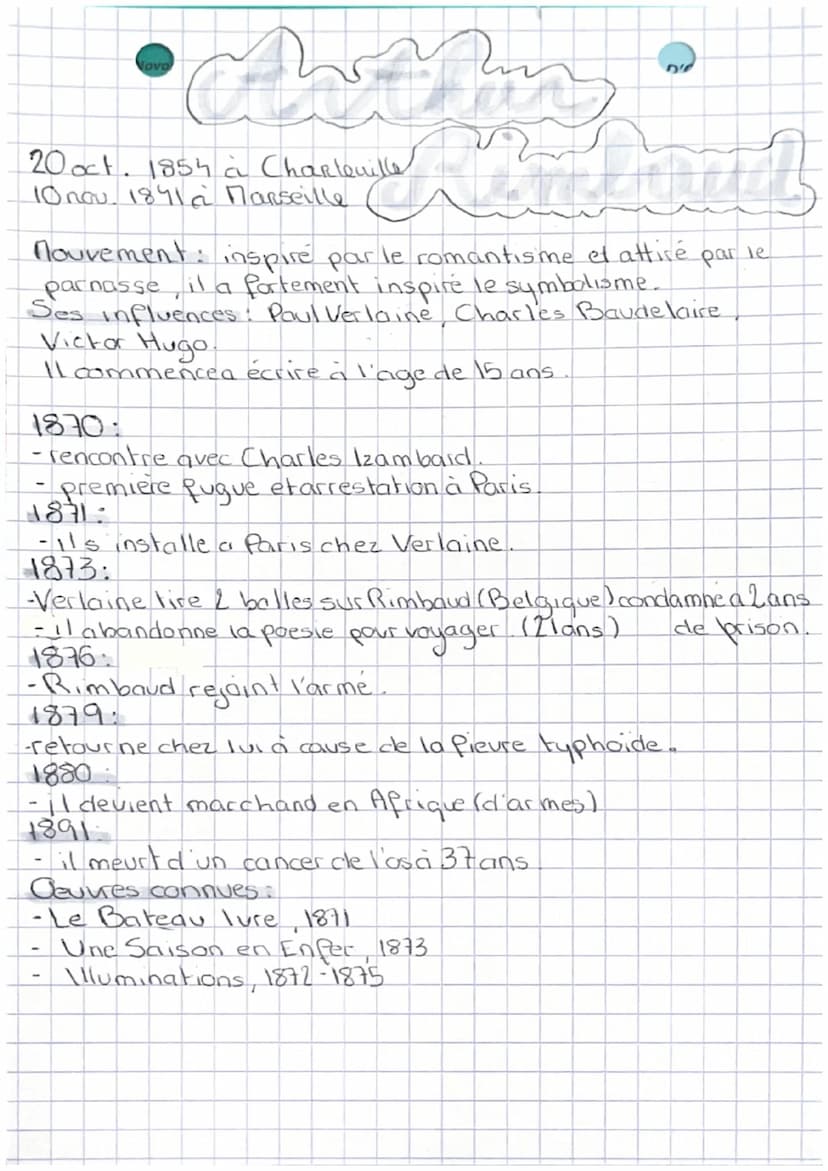 Nova
D'é
Arthur
Rimbaud
20 oct. 1854 à Charleville
10 nov. 1891 à Marseille
Mouvement : inspiré par le romantisme et attiré par le
parnasse, il a fortement inspiré le symbolisme.
Ses influences : Paul Verlaine, Charles Baudelaire,
Victor Hugo.
Il commence a écrire à l'age de 15 ans.
1870 :
- rencontre avec Charles Izambard.
- première fugue et arrestation à Paris.
1871 :
- il s'installe a Paris chez Verlaine.
1873 :
- Verlaine tire 2 balles sur Rimbaud (Belgique) condamné a 2 ans
de prison.
- il abandonne la poesie pour voyager. (21 ans)
1876 :
- Rimbaud rejoint l'armé.
1879 :
- retourne chez lui à cause de la fievre typhoïde.
1880 :
- il devient marchand en Afrique (d'armes)
1891 :
- il meurt d'un cancer de l'os à 37 ans
Œuvres connues :
- Le Bateau Ivre, 1871
- Une Saison en Enfer, 1873
- Illuminations, 1872-1875